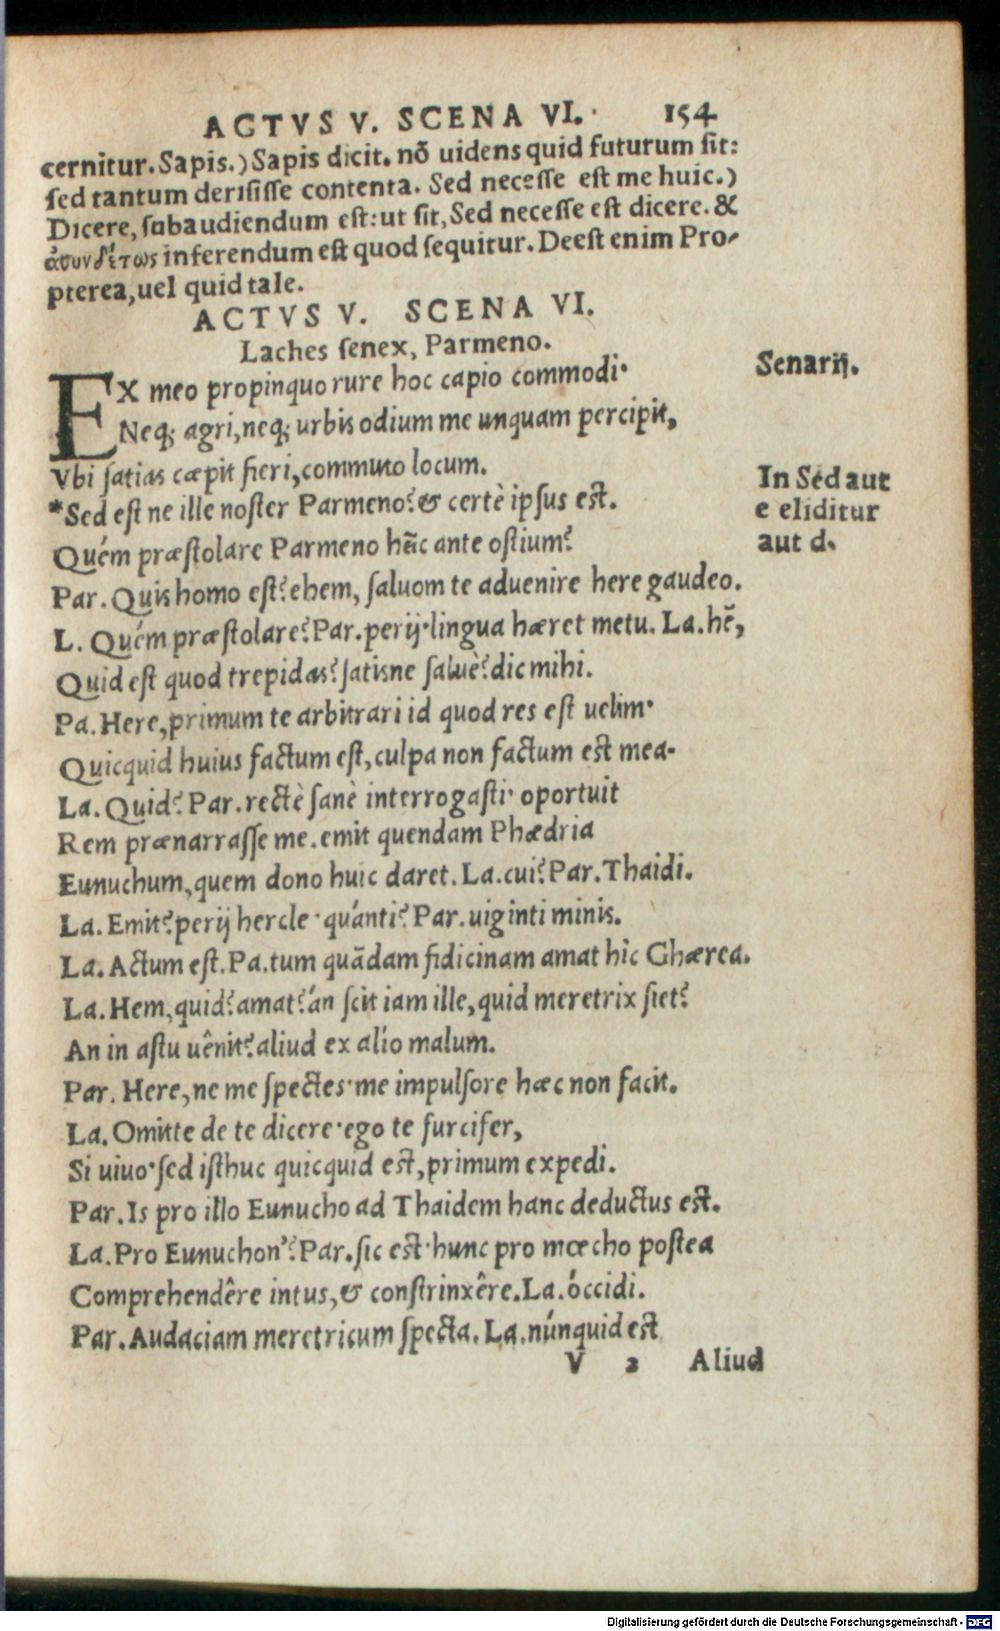 ACTVS V. SCENA VI. 154
cernitur. Sapis.) Sapis dicit. nõ uidens quid futurum ſit:
ſed tantum deriſiſſe contenta. Sed neceſſe eſt me huic.)
Dicere, ſubaudiendum eſt: ut ſit, Sed neceſſe eſt dicere. &
ἀσυνδέτως inferendum eſt quod ſequitur. Deeſt enim Pro-
pterea, uel quid tale.
ACTVS V. SCENA VI.
Laches ſenex, Parmeno.
EX meo propinquo rure hoc capio commodi·
Neq; agri, neq; urbis odium me unquam percipit,
Vbi ſatias cæpit fieri, commuto locum.
*Sed eſt ne ille noſter Parmeno? & certè ipſus eſt.
Quém præſtolare Parmeno hĩc ante oſtium?
Par. Quis homo eſt? ehem, ſaluom te aduenire here gaudeo.
L. Quém præſtolare? Par. perij· lingua hæret metu. La. hẽ,
Quid eſt quod trepidas? ſatisne ſaluè? dic mihi.
Pa. Here, primum te arbitrari id quod res eſt uelim·
Quicquid huius factum eſt, culpa non factum eſt mea·
La. Quid? Par. rectè ſanè interrogaſti· oportuit
Rem prænarraſſe me. emit quendam Phædria
Eunuchum, quem dono huic daret. La. cui? Par. Thaidi.
La. Emit? perij hercle· quánti? Par. uiginti minis.
La. Actum eſt. Pa. tum quãdam fidicinam amat hìc Chærea.
La. Hem, quid? amat? án ſcit iam ille, quid meretrix ſiet?
An in aſtu uênit? aliud ex alio malum.
Par. Here, ne me ſpectes· me impulſore hæc non facit.
La. Omitte de te dicere· ego te furcifer,
Si uiuo· ſed iſthuc quicquid eſt, primum expedi.
Par. Is pro illo Eunucho ad Thaidem hanc deductus eſt.
La. Pro Eunuchon'? Par. ſic eſt· hunc pro mœcho poſtea
Comprehendêre intus, & conſtrinxêre. La. óccidi.
Par. Audaciam meretricum ſpecta. La. núnquid eſt
V 2 Aliud
Senarij.
In Sed aut
e eliditur
aut d.
Digitalisierung gefördert durch die Deutsche Forschungsgemeinschaft - DFG